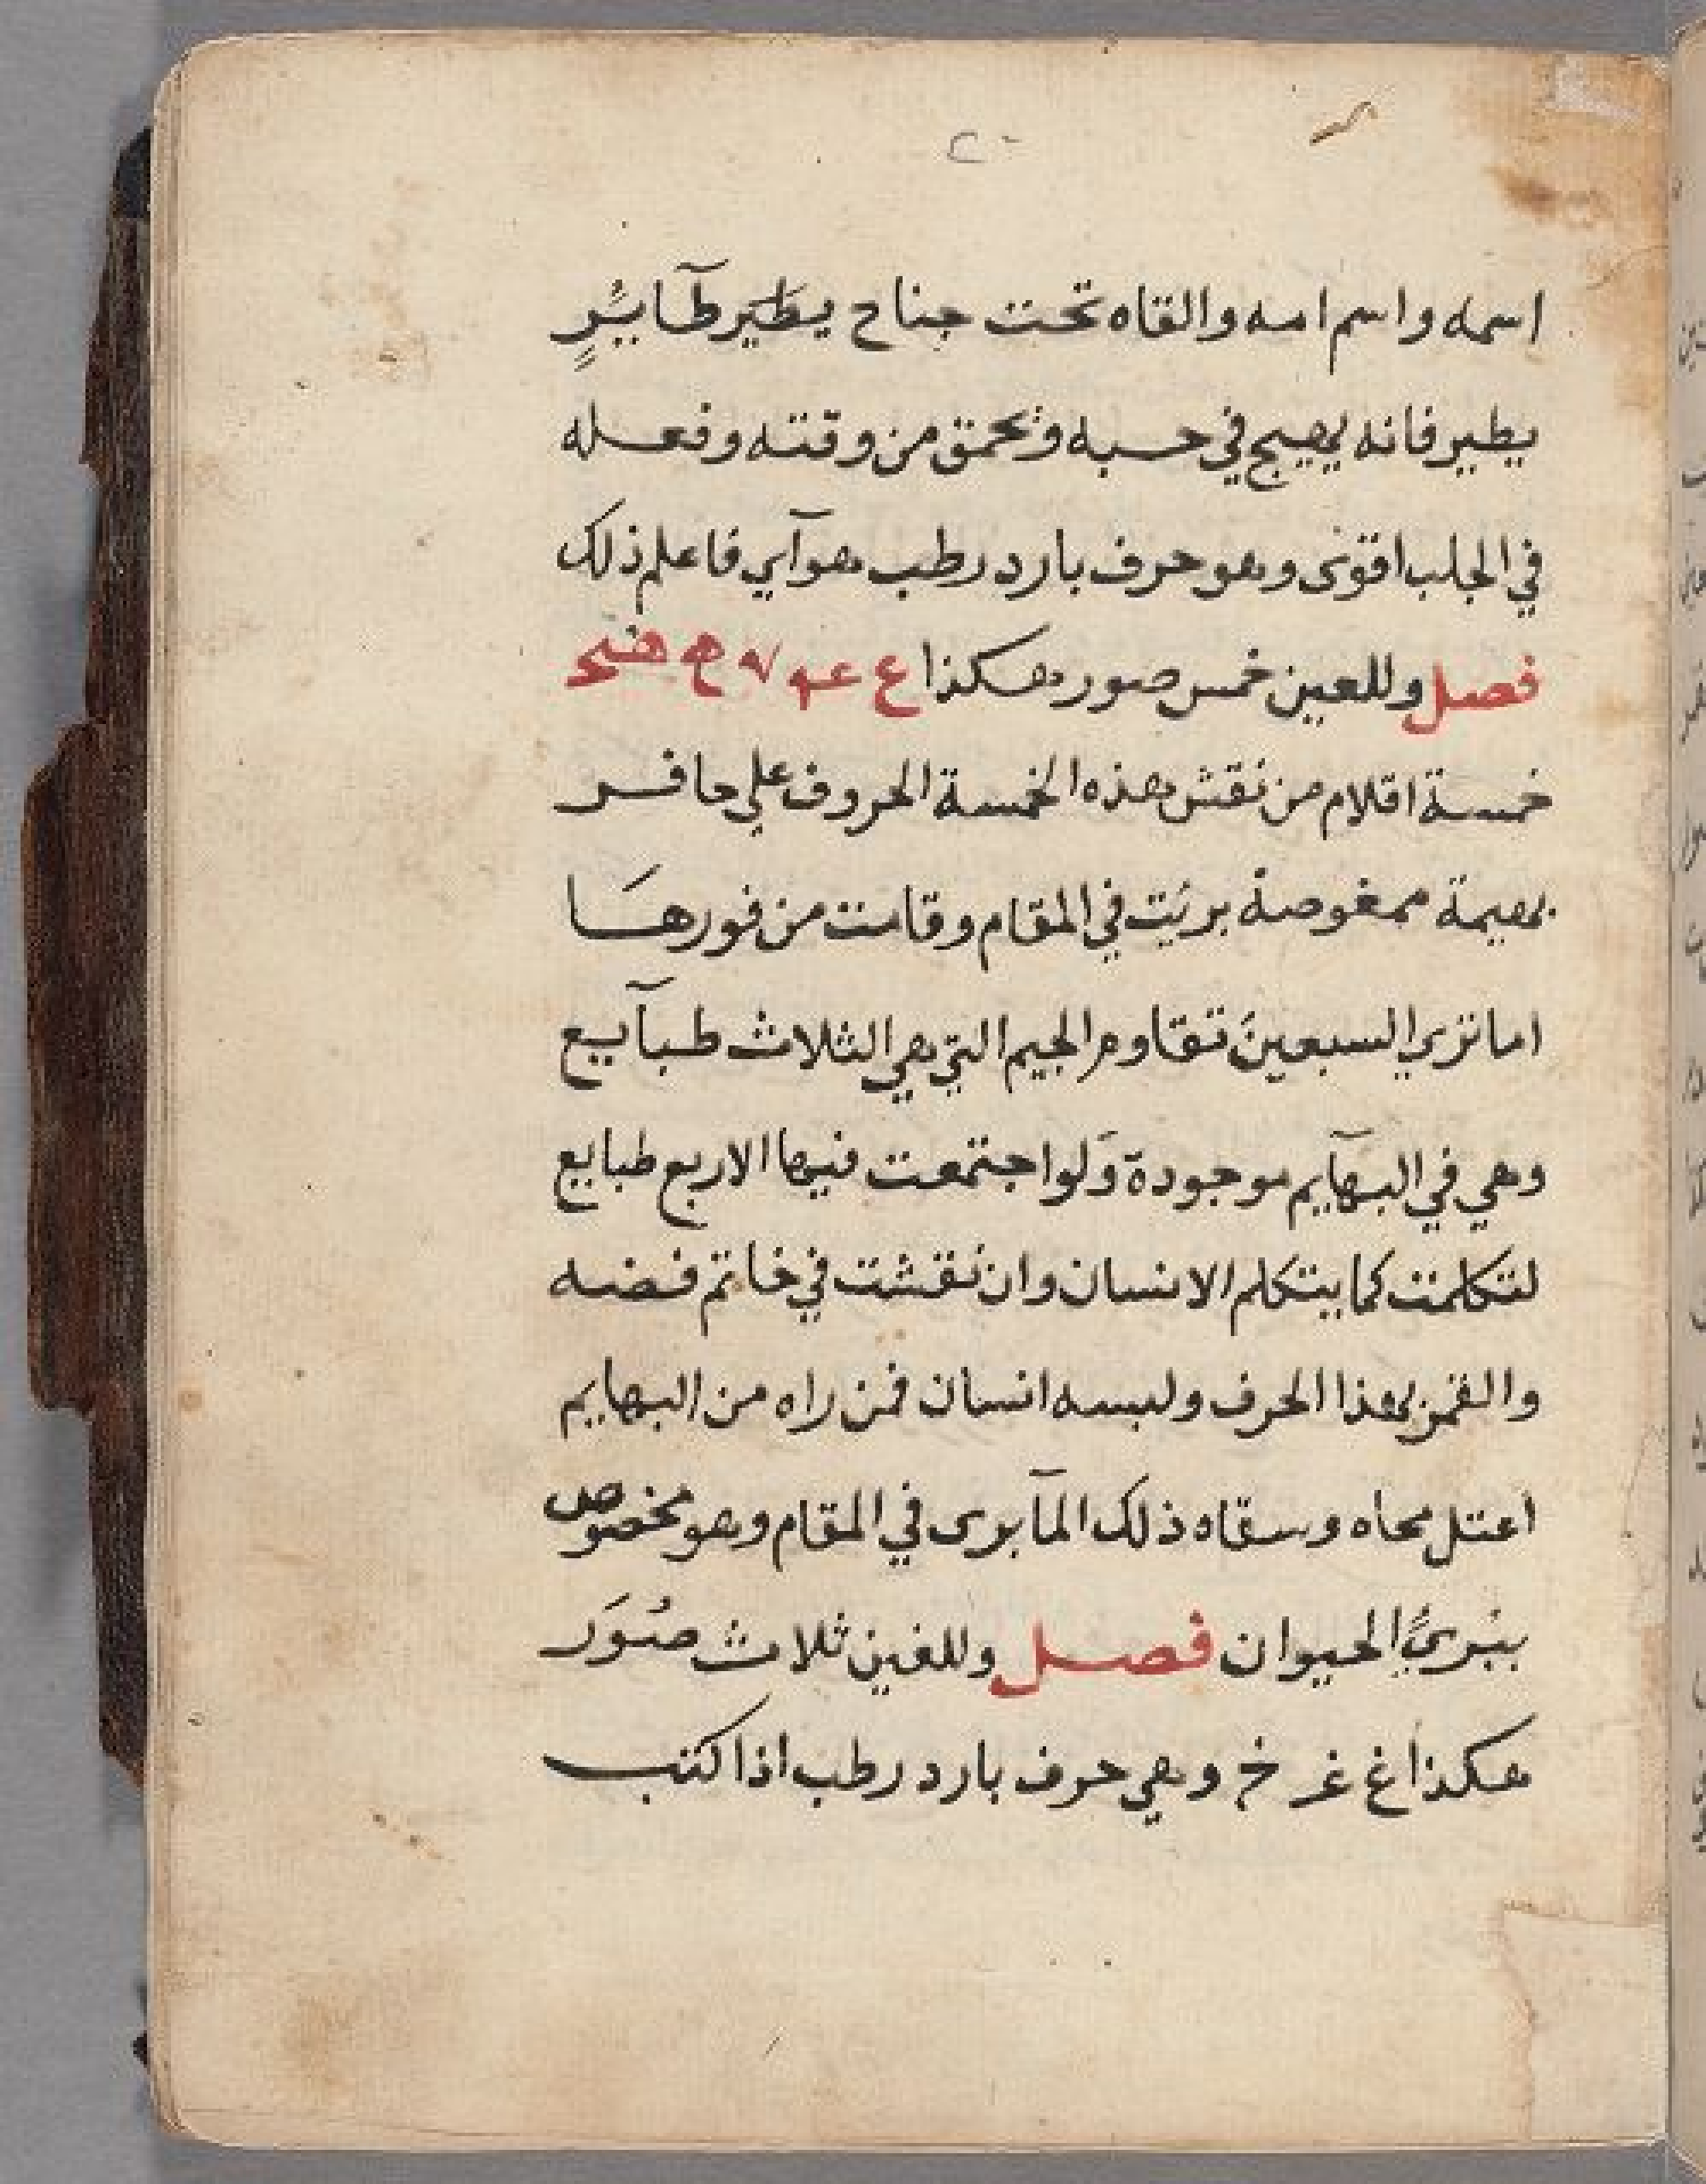 ٢٠
اسمه واسم امه والقاه تحت جناح يطير طآيرٍ
يطير فانه يهيج في حبه ويحمق من وقته وفعله
في الجلب اقوى وهو حرف بارد رطب هوآي فاعلم ذلك
فصل وللعين خمس صور هكذا ع عہ
خمسة اقلام من نقش هذه الخمسة الحروف علي حافر
بهيمة ممغوصة بريت في المقام وقامت من فورها
اما تري السبعين تقاوم الجيم التي هي الثلاث طبآيع
وهي في البهآيم موجودة وَلو اجتمعت فيها الاربع طبايع
لتكلمت كما يتكلم الانسان وان نقشت في خاتم فضه
والقمر بهذا الحرف ولبسه انسان فمن راه من البهايم
اعتل محاه وسقاه ذلك المآ برى في المقام وهو مخصوص
ببري الحيوان فصل وللغين ثلاث صُوَر
هكذا غ غـ خ وهي حرف بارد رطب اذا كتب